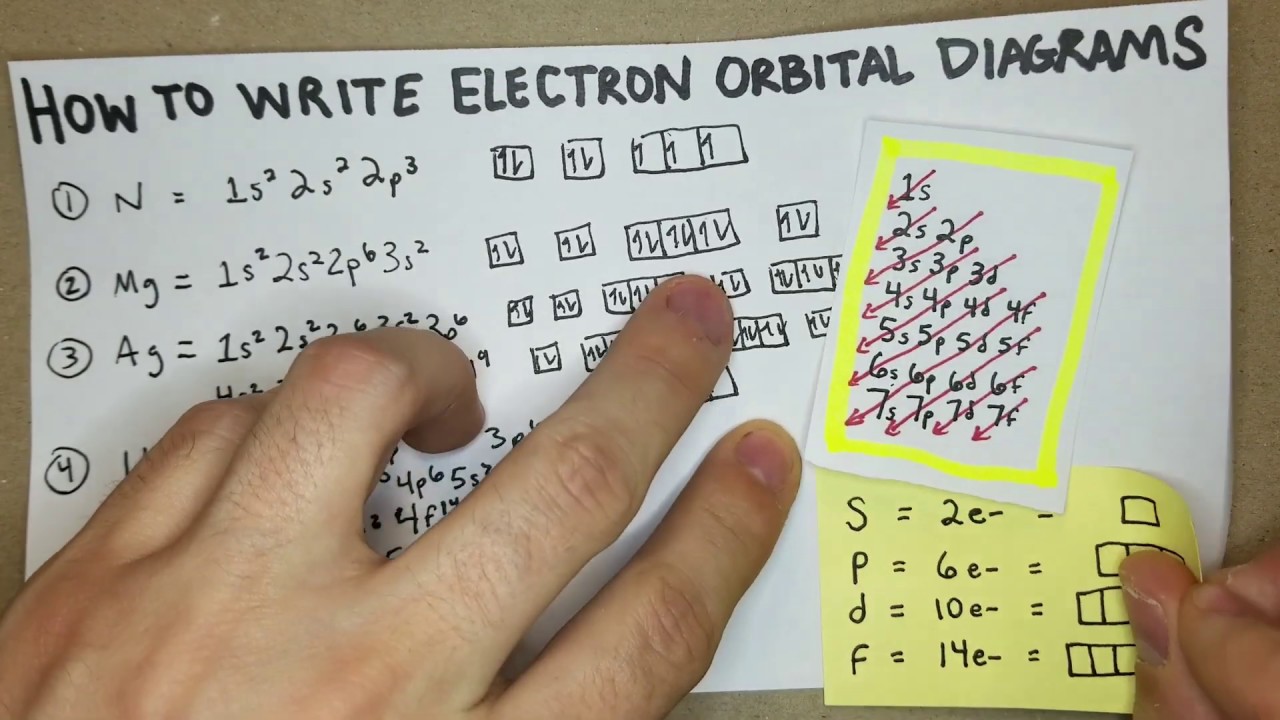 HOW TO WRITE ELECTRON ORBITAL DIAGRAMS
① N = 1s² 2s² 2p³
② Mg = 1s² 2s² 2p⁶ 3s²
③ Ag = 1s² 2s²
④
3p
4p⁶ 5s
4f¹⁴
1s
2s 2p
3s 3p 3d
4s 4p 4d 4f
5s 5p 5d 5f
6s 6p 6d 6f
7s 7p 7d 7f
S = 2e- -
P = 6e- =
d = 10e- =
F = 14e- =